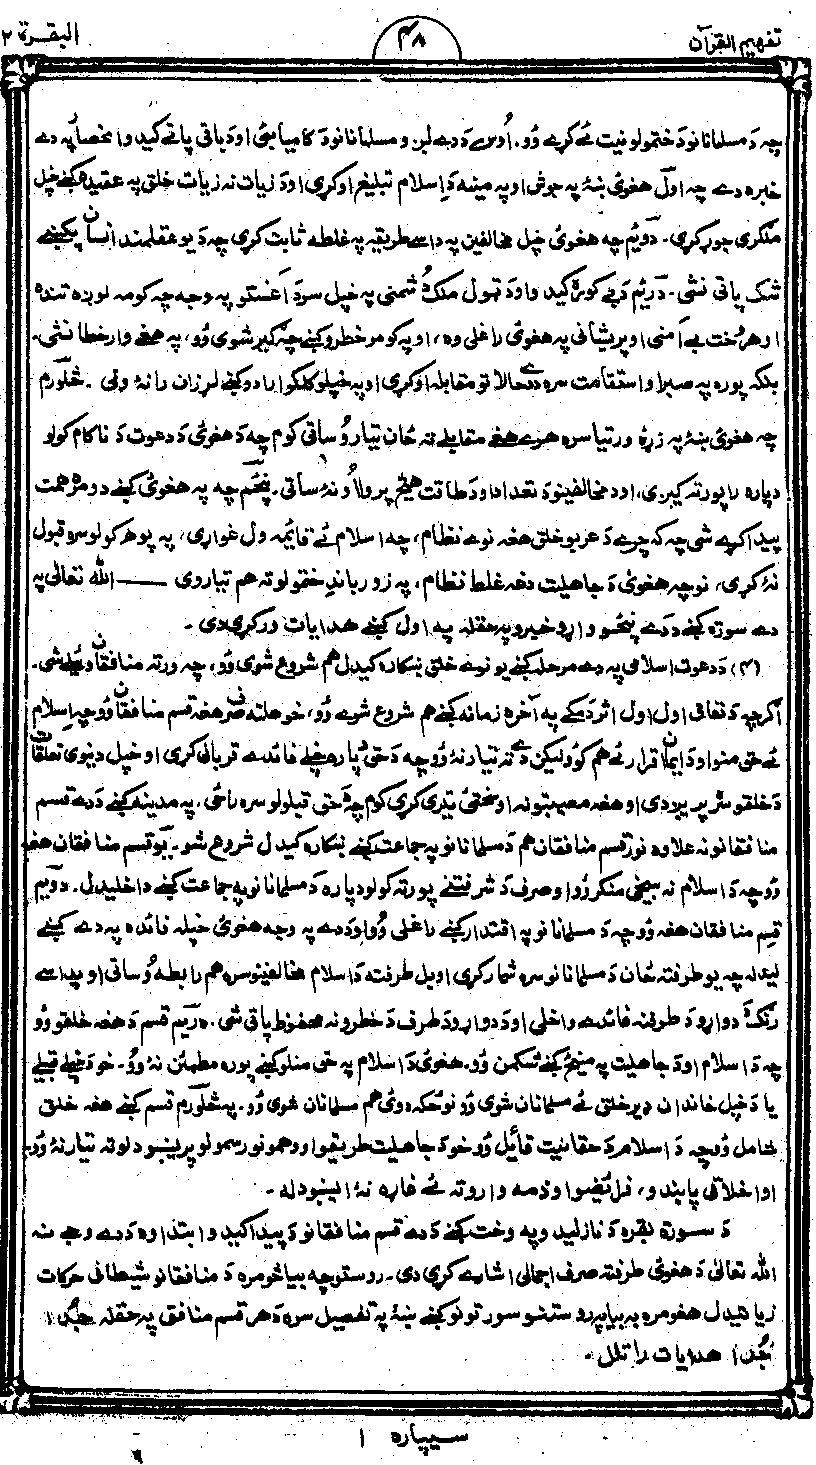 تفهیم القرآن ۴۸ البقرة ۲
چه دَ مسلمانانو دَ ختمولو نیت ئے کړے وُو. اُوس دَ دے لږو مسلمانانو دَ کامیابئ او دَ باقی پاتے کیدو انحصار په دے
خبره دے چه اوّل هغوئ ښۀ په جوش او په مینه دَ اِسلام تبلیغ اوکړی او دَ زیات نه زیات خلق په عقیده کښے خپل
ملګری جوړ کړی. دوئیم چه هغوئ خپل مخالفین په داسے طریقه په غلطه ثابت کړی چه دَ یو عقلمند انسان پکښے
شک پاتی نشی. دریئم دَ بے کوره کیدو او دَ ټول ملک دُشمنی په خپل سر دَ اَغستو په وجه چه کومه لوږه تنده
او هر وخت بے اَمنی او پریشانی په هغوئ راغلی وه، او په کومو خطرو کښے چه ګیر شوی وُو، په هغے وارخطا نشی.
بلکه پوره په صبر او استقامت سره دے حالاتو مقابله اوکړی او په خپلو کلکو ارادو کښے لرزان رانۀ ولی. څلورم
چه هغوئ ښۀ په زړۀ ورتیا سره هرے هغے مقابلے ته ځان تیار وُساتی کوم چه دَ هغوئ دَ دعوت دَ ناکام کولو
دپاره راپورته کیږی، او دَ مخالفینو دَ تعداد او دَ طاقت هیڅ پرواه اُونۀ ساتی. پنځم چه په هغوئ کښے دومره همت
پیدا کړے شی چه که چرے دَ عربو خلق هغه نوے نظام، چه اسلام ئے قائمه ول غواړی، په پوهه کولو سره قبول
نۀ کړی، نو چه هغوئ دَ جاهلیت دغه غلط نظام، په زور باندِ ختمولو ته هم تیار وی — الله تعالیٰ په
دے سورة کښے دَ دے پنځو واړو خیزو په حقله په اول کښے هدایات ورکړی دی.
(۴) دَ دعوت اسلامی په دے مرحله کښے یو نوے خلق ښکاره کیدل هم شروع شوی وُو، چه ورته منافقان وئیلے شی.
اګرچه دَ نفاق اول اول اثر دَ مکے په آخره زمانه کښے هم شروع شوے وُو، خو هلته صرف هغه قسم منافقان وُو چه اِسلام
ئے حق منو او دَ ایمان اقرار ئے هم کوُو لیکن دے ته تیار نۀ وُو چه دَ حق دپاره خپلے فائدے قربانی کړی او خپل دنیوی تعلقات
دَ خلقو سره پریږدی او هغه مصیبتونه او سختئ تیرے کړی کوم چه دَ حق قبلولو سره راځی. په مدینه کښے دَ دے قسم
منافقانو نه علاوه نور قسم منافقان هم دَ مسلمانانو په جماعت کښے ښکاره کیدل شروع شو. یو قسم منافقان هغه
وُو چه دَ اسلام نه بیخی منکر وُو او صرف دَ شر فتنے پورته کولو دپاره دَ مسلمانانو په جماعت کښے داخلیدل. دوئیم
قسم منافقان هغه وُو چه دَ مسلمانانو په اقتدار کښے راغلی وُو او دَ دے په وجه هغوئ خپله فائده په دے کښے
لیدله چه یو طرفته ځان دَ مسلمانانو سره شمار کړی او بل طرفته دَ اسلام مخالفینو سره هم رابطه وُساتی او په داسے
رنګ دَ دواړو دَ طرفنه فائدے واخلی او دَ دواړو دَ طرف دَ خطرو نه محفوظ پاتی شی. دریئم قسم دَ هغه خلقو وُو
چه دَ اسلام او دَ جاهلیت په مینځ کښے شکمن وُو. هغوئ دَ اسلام په حق منلو کښے پوره مطمئن نۀ وُو. خو دَ خپلے قبیلے
یا دَ خپل خاندان ډیر خلق ئے مسلمانان شوی وُو نو ځکه دوئ هم مسلمانان شوی وُو. په څلورم قسم کښے هغه خلق
شامل وُو چه دَ اسلام دَ حقانیت قائیل وُو خو دَ جاهلیت طریقو او وهمونو رسمولو پریښودلو ته تیار نۀ وُو.
او اخلاقی پابندو، فرائضو او ذمه وارو ته ئے غاړه نۀ ایښودله.
دَ سورة بقره دَ نازلیدو په وخت کښے دَ دے قسم منافقانو دَ پیدا کیدو ابتداء وه دَ دے وجے نه
الله تعالیٰ دَ هغوئ طرفته صرف اجمالی اشارے کړی دی. روستو چه بیا څومره دَ منافقانو شیطانی حرکات
زیاتیدل هغومره په بیا په روستنو سورتونو کښے ښۀ په تفصیل سره دَ هر قسم منافق په حقله جُدا
جُدا هدایات راتلل.
سیپاره ۱